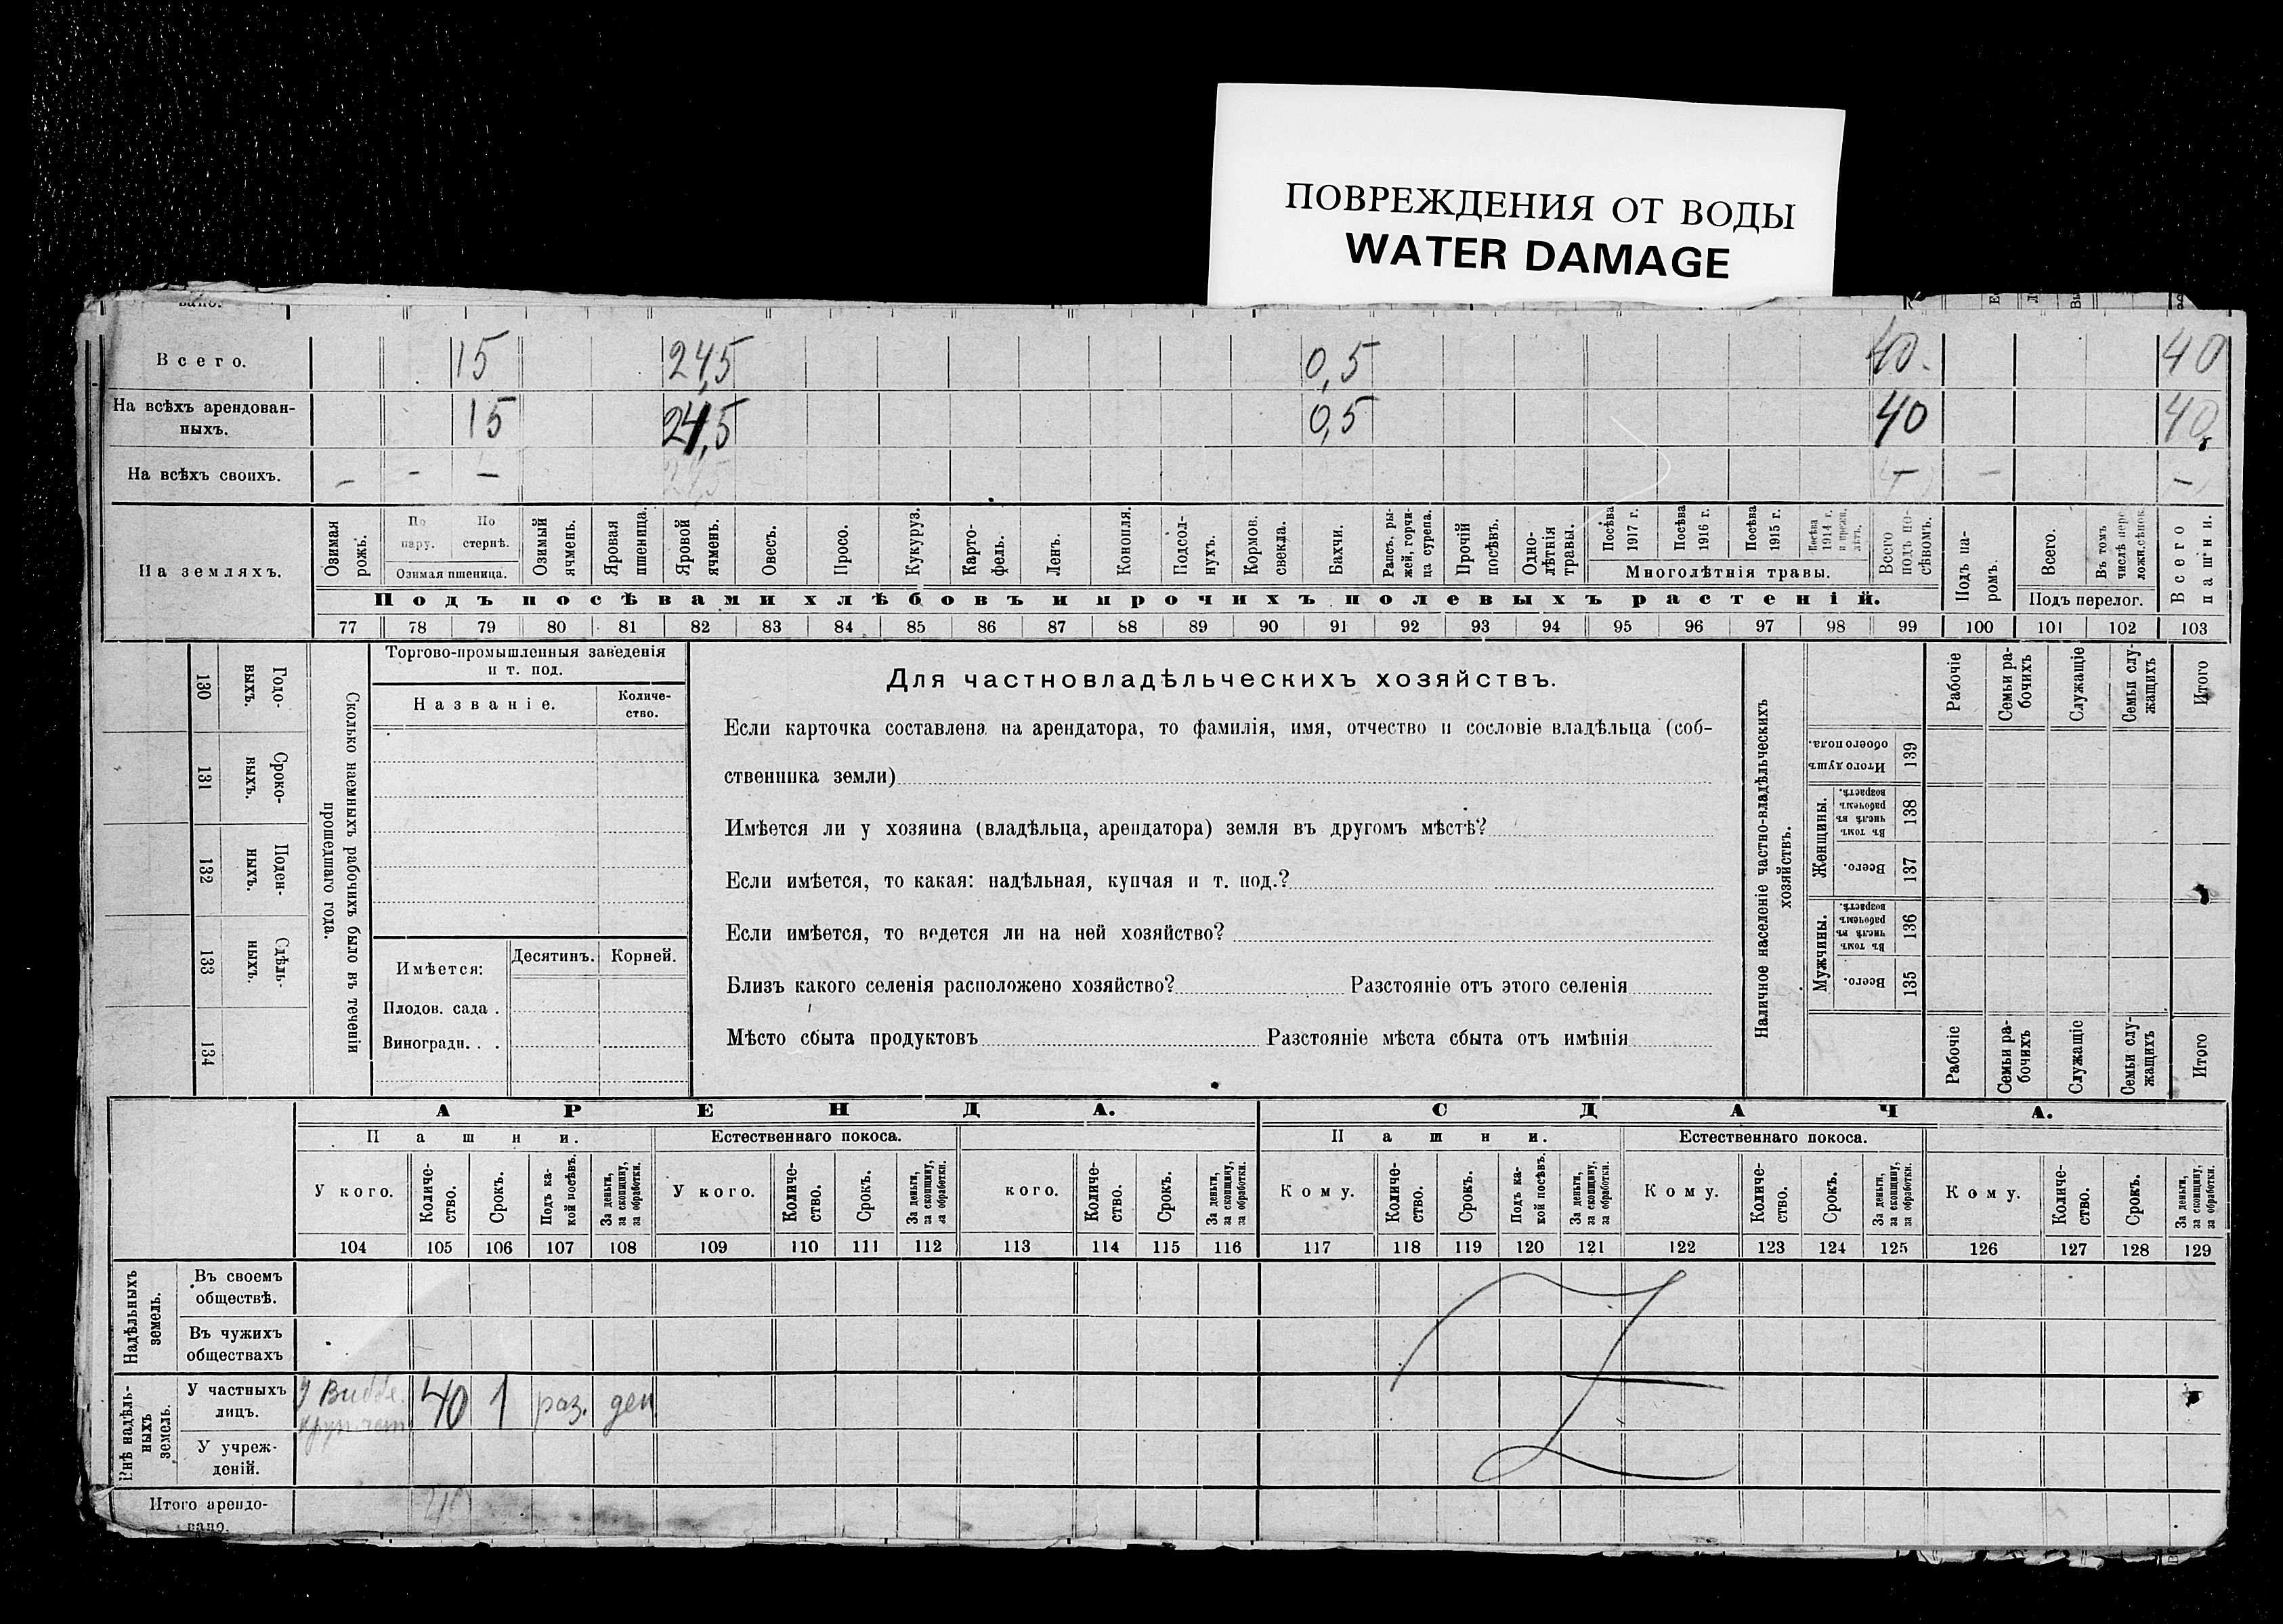 ПОВРЕЖДЕНИЯ ОТ ВОДЫ
WATER DAMAGE
Всего. 15 24,5 0,5 40. 40
На всѣхъ арендован- 15 24,5 0,5 40 40
ныхъ.
На всѣхъ своихъ. – – – – – –
На земляхъ.
Озимая рожь.
По пару.
По стернѣ.
Озимая пшеница.
Озимый ячмень.
Яровая пшеница.
Яровой ячмень.
Овесъ.
Просо.
Кукуруз.
Карто-
фель.
Ленъ.
Конопля.
Подсол-
нухъ.
Кормов.
свекла.
Бахчи.
Рапсъ, ры-
жей, горчи-
ца сурепа.
Прочій
посѣвъ.
Одно-
лѣтнія
травы.
Посѣва
1917 г.
Посѣва
1916 г.
Посѣва
1915 г.
Посѣва
1914 г.
и прежн.
лѣтъ.
Многолѣтнія травы.
Всего
подъ по-
сѣвомъ.
Подъ па-
ромъ.
Всего.
Въ томъ
числѣ пере-
ложн.сѣнок.
Подъ перелог.
Всего
пашни.
Подъ посѣвами хлѣбовъ и прочихъ полевыхъ растеній.
77 78 79 80 81 82 83 84 85 86 87 88 89 90 91 92 93 94 95 96 97 98 99 100 101 102 103
130 Годо-
выхъ.
131 Сроко-
ныхъ.
132 Поден-
ныхъ.
133 Сдѣль-
ныхъ.
134
Сколько наемныхъ рабочихъ было въ теченіи
прошедшаго года.
Торгово-промышленныя заведенія
и т. под.
Названіе.
Количе-
ство.
Имѣется:
Десятинъ. Корней.
Плодов. сада .
Виноградн. . .
Для частновладѣльческихъ хозяйствъ.
Если карточка составлена на арендатора, то фамилія, имя, отчество и сословіе владѣльца (соб-
ственника земли)
Имѣется ли у хозяина (владѣльца, арендатора) земля въ другомъ мѣстѣ?
Если имѣется, то какая: надѣльная, купчая и т. под.?
Если имѣется, то ведется ли на ней хозяйство?
Близъ какого селенія расположено хозяйство? Разстояніе отъ этого селенія
Мѣсто сбыта продуктовъ Разстояніе мѣста сбыта отъ имѣнія
Наличное населеніе частно-владѣльческихъ
хозяйствъ.
Рабочіе
Семьи ра-
бочихъ
Служащіе
Семьи слу-
жащихъ
Итого
139 Итого душъ
обоего пола.
Женщины.
138 Въ томъ
числѣ въ
рабочемъ
возрастѣ.
137 Всего.
Мужчины.
136 Въ томъ
числѣ въ
рабочемъ
возрастѣ.
135 Всего.
Рабочіе
Семьи ра-
бочихъ
Служащіе
Семьи слу-
жащихъ
Итого
АРЕНДА. СДАЧА.
Пашни. Естественнаго покоса. Пашни. Естественнаго покоса.
У кого.
Количе-
ство.
Срокъ.
Подъ ка-
кой посѣвъ.
За деньги,
за скопщину,
за обработки.
У кого.
Количе-
ство.
Срокъ.
За деньги,
за скопщину,
за обработки.
кого.
Количе-
ство.
Срокъ.
За деньги,
за скопщину,
за обработки.
Кому.
Количе-
ство.
Срокъ.
Подъ ка-
кой посѣвъ.
За деньги,
за скопщину,
за обработки.
Кому.
Количе-
ство.
Срокъ.
За деньги,
за скопщину,
за обработки.
Кому.
Количе-
ство.
Срокъ.
За деньги,
за скопщину,
за обработки.
104 105 106 107 108 109 110 111 112 113 114 115 116 117 118 119 120 121 122 123 124 125 126 127 128 129
Надѣльныхъ
земель.
Въ своемъ
обществѣ.
Въ чужихъ
обществахъ
Внѣ надѣль-
ныхъ
земель.
У частныхъ
лицъ.
40 1 раз. ден
У учреж-
деній.
Итого арендо-
вано.